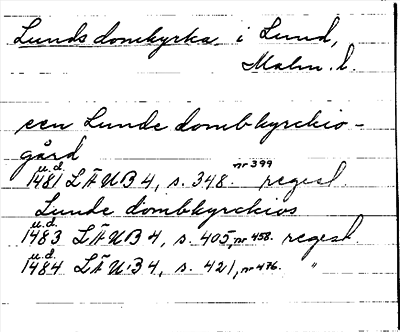 Lunds domkyrka i Lund,
Malm. l.
een Lunde dombkyrckio-
gård
u.d. 1481 LÄUB 4, s. 348. nr 399 regest
Lunde dombkyrckios
u.d. 1483 LÄUB 4, s. 405, nr 458. regest
u.d. 1484 LÄUB 4, s. 421, nr 476. "